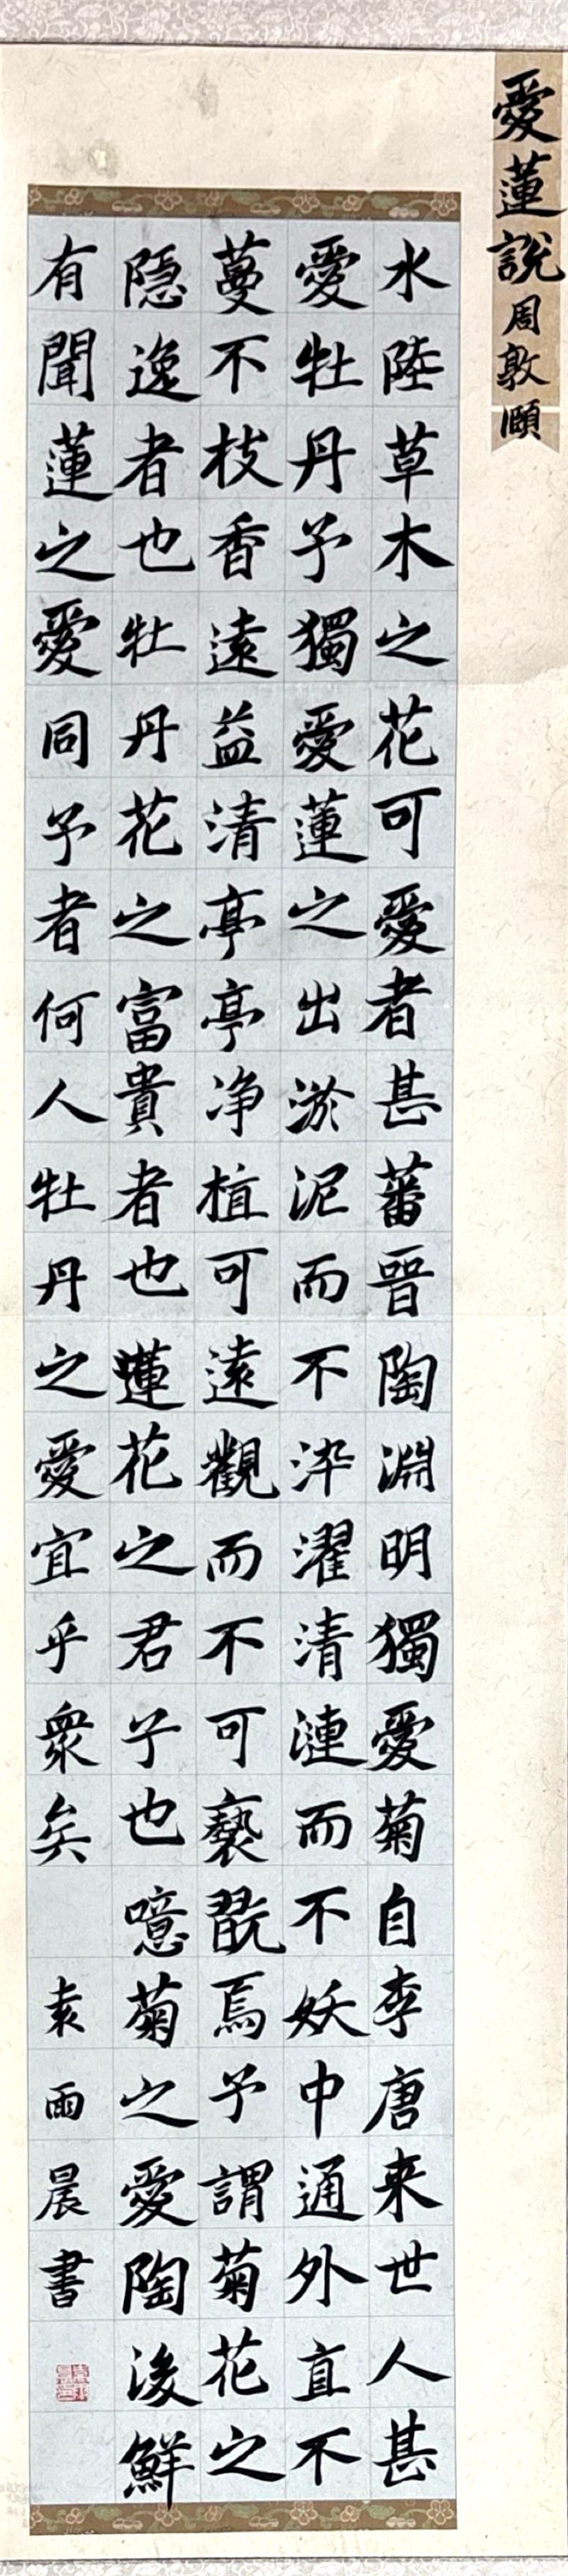 愛蓮説 周敦頤
水陸草木之花可愛者甚蕃晉陶淵明獨愛菊自李唐来世人甚
愛牡丹予獨愛蓮之出淤泥而不染濯清漣而不妖中通外直不
蔓不枝香遠益清亭亭净植可遠觀而不可褻翫焉予謂菊花之
隱逸者也牡丹花之富貴者也蓮花之君子也噫菊之愛陶後鮮
有聞蓮之愛同予者何人牡丹之愛宜乎衆矣
袁雨晨書